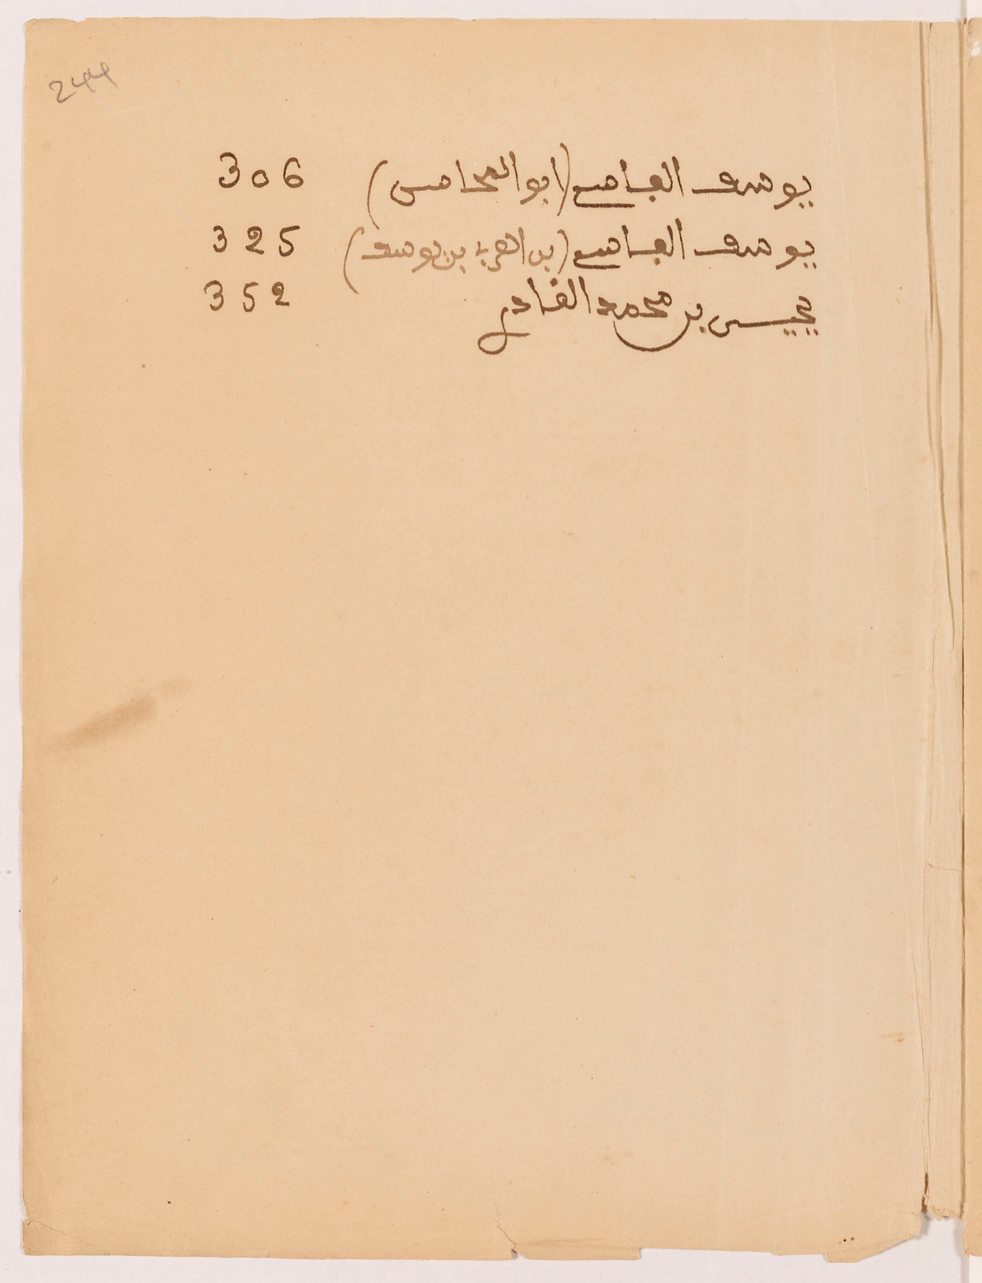 244
يوسف الفاسي (ابو المحاسن) 306
يوسف الفاسي (بن العربي بن يوسف) 325
يحيى بن محمد القادري 352